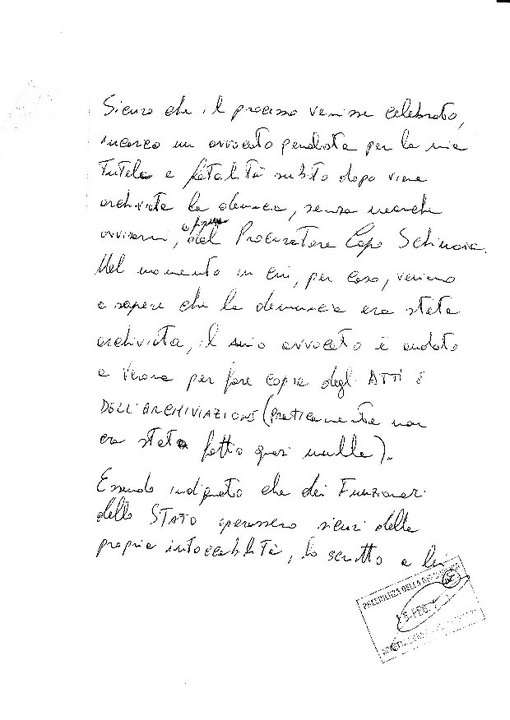 Sicuro che il processo venisse celebrato,
incarco un avvocato penalista per la mia
tutela e fatalità subito dopo viene
archiviata la denuncia, senza neanche
avvisarmi, dal Procuratore Capo Schinaia.
Nel momento in cui, per caso, veniamo
a sapere che la denuncia era stata
archiviata, il mio avvocato è andato
a Verona per fare copia degli ATTI E
DELL'ARCHIVIAZIONE (praticamente non
era stato fatto quasi nulla).
Essendo indignato che dei Funzionari
dello STATO operassero sicuri della
propria intoccabilità, ho scritto a lei
PRESIDENZA DELLA REPUBBLICA
FEB